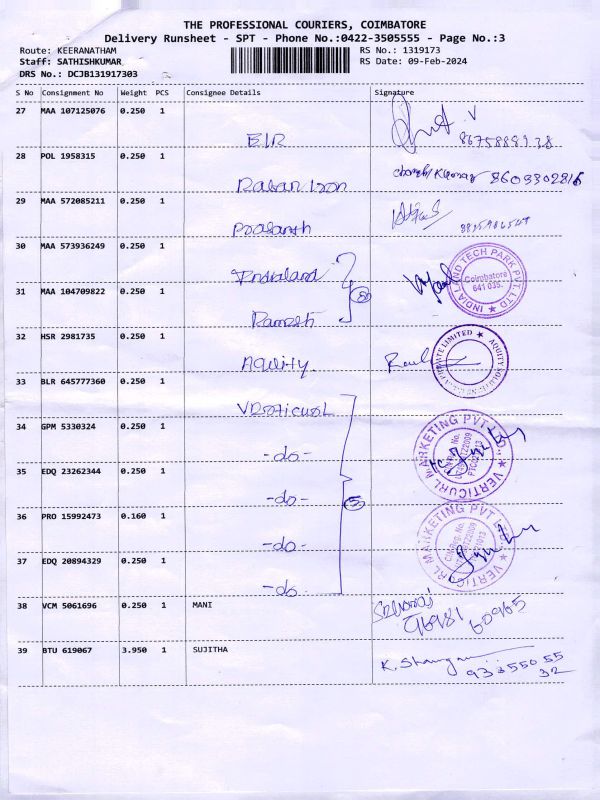 THE PROFESSIONAL COURIERS, COIMBATORE
Delivery Runsheet - SPT - Phone No.:0422-3505555 - Page No.:3
Route: KEERANATHAM
RS No.: 1319173
Staff: SATHISHKUMAR
RS Date: 09-Feb-2024
DRS No.: DCJB131917303
S No Consignment No Weight PCS Consignee Details Signature
27 MAA 107125076 0.250 1
28 POL 1958315 0.250 1
8609302816
29 MAA 572085211 0.250 1
Prasanth
30 MAA 573936249 0.250 1
INDIA LAND TECH PARK PVT. LTD
Coimbatore
641 035.
31 MAA 104709822 0.250 1
Ramesh
32 HSR 2981735 0.250 1
Aquity
33 BLR 645777360 0.250 1
Verticurl
34 GPM 5330324 0.250 1
-do-
VERTICURL MARKETING PVT LTD.,
35 EDQ 23262344 0.250 1
-do-
5
36 PRO 15992473 0.160 1
-do-
VERTICURL MARKETING PVT LTD.,
37 EDQ 20894329 0.250 1
-do-
38 VCM 5061696 0.250 1 MANI
96981 60965
39 BTU 619067 3.950 1 SUJITHA